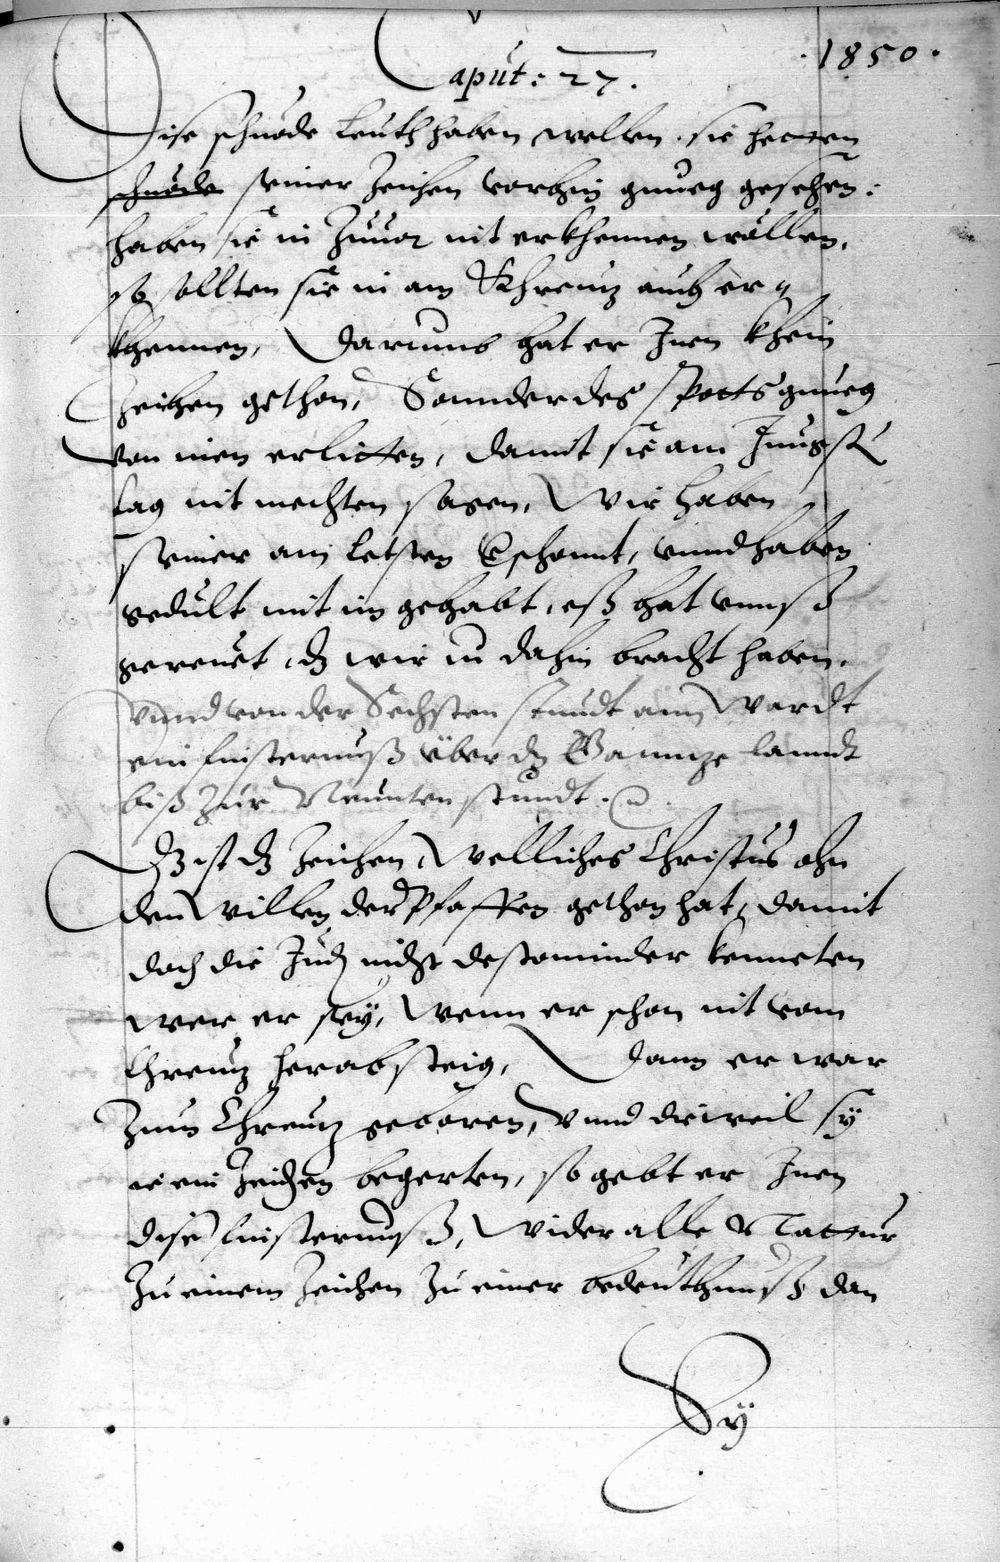 Caput: 27.
.1850.
Dise schnöde leuth haben wellen. sie hetten
schnöde seiner Zeichen vorhin gnueg gesehen:
haben sie in Zuuor nit erkhennen wöllen,
so sollten sie in am Khreutz auch er=
khennen, Darumb hat er Inen khein
Zeichen gethon, Sonnder des Spotts gnueg
von inen erlitten, damit sie am Jungst
tag nit mechten sagen, Wir haben
seiner am letsten Gschonnt, vnnd haben
gedult mit im gehabt, eß hat vnnß
gereuet, dz wir in dahin bracht haben.
Vnnd von der Sechsten stundt ann Wardt
ein finsternuß über dz Gannze lanndt
biß zur Neunten stundt.
Dz ist dz Zeichen, Welliches Christus ohn
den Willen der Pfaffen gethon hat, damit
doch die Jud nicht destominder kenneten
wer er sey, Wenn er schon nit vom
Chreutz herab steig, Dann er war
Zum Chreutz geboren, Vnnd dieweil sy
ie ein Zeichen begerten, so gebt er Inen
dise finsternuß, Wider alle Nattur
Zu einem Zeichen Zu einer bedeuthnuß dan
Sy